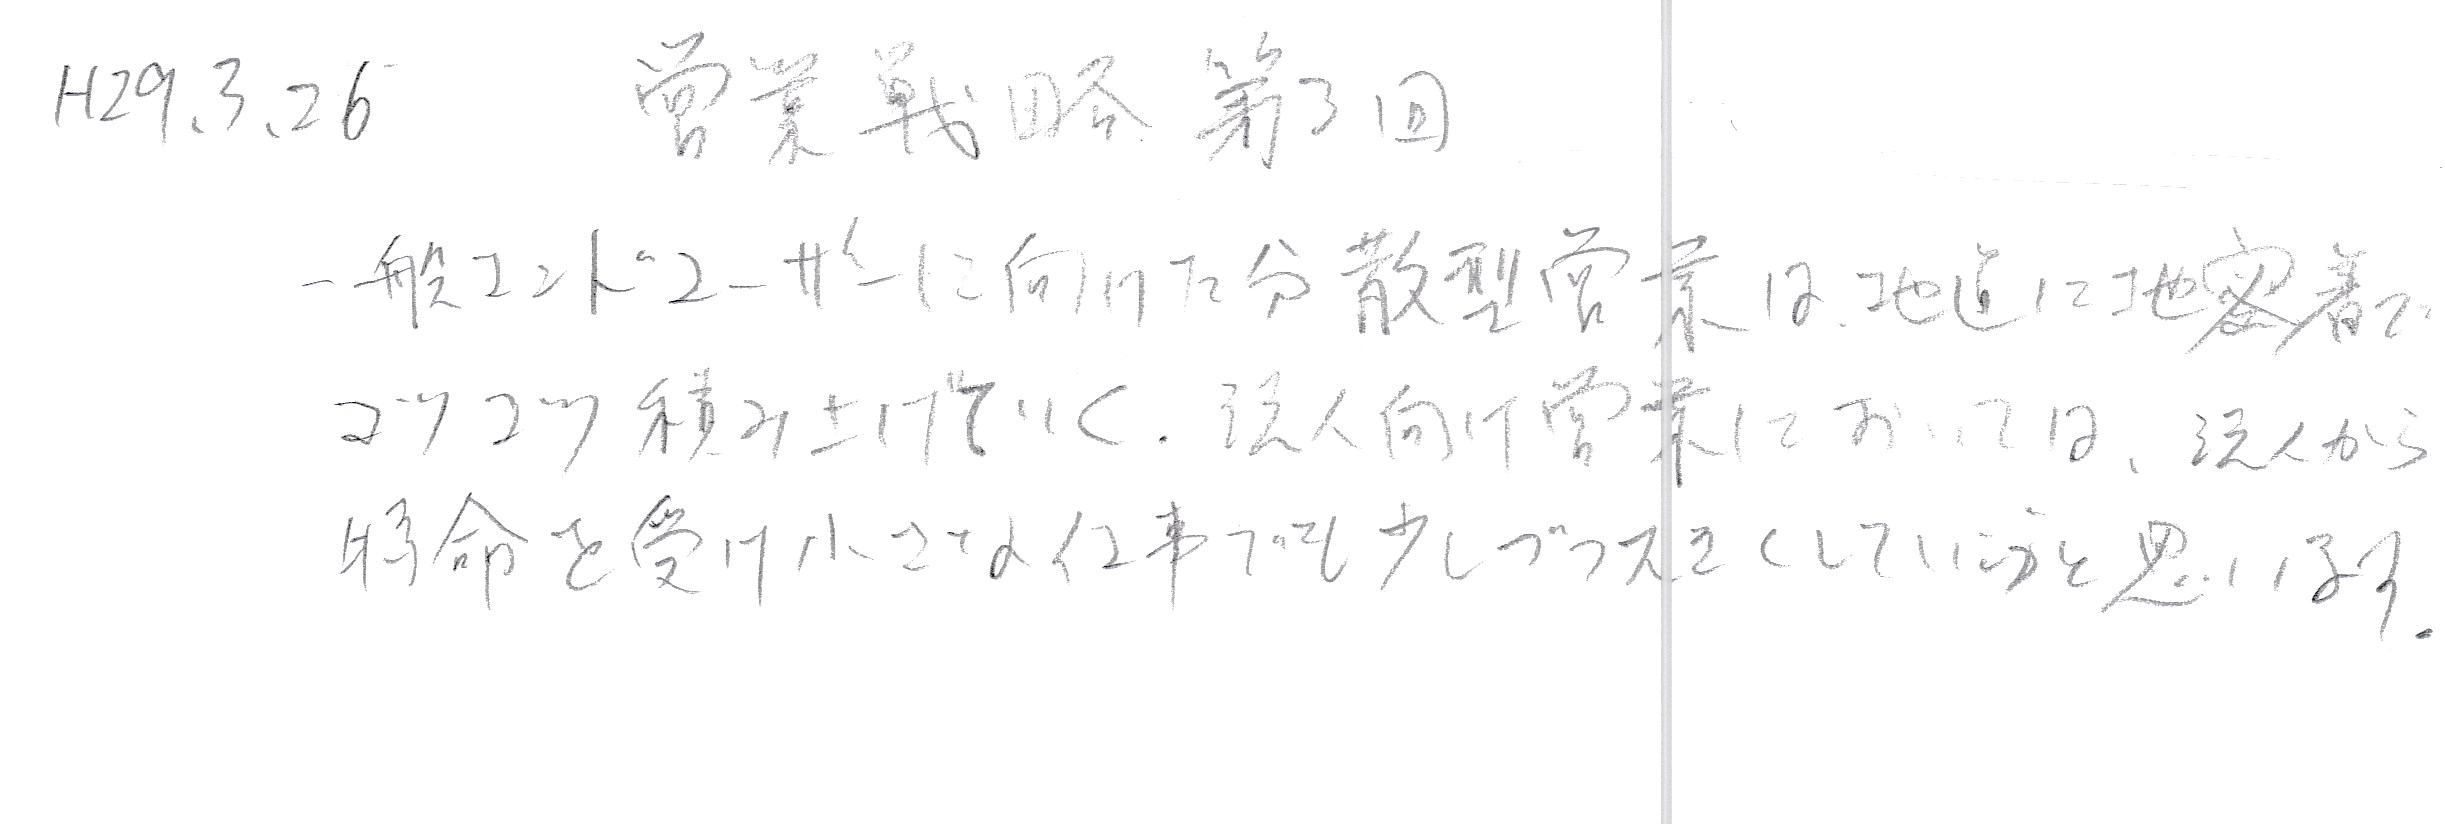 H29.3.26 営業戦略 第3回
一般エンドユーザーに向けた分散型営業は、地道に地密着で
コツコツ積み上げていく。法人向け営業においては、法人から
特命を受け小さな仕事でも少しづつ大きくしていこうと思います。